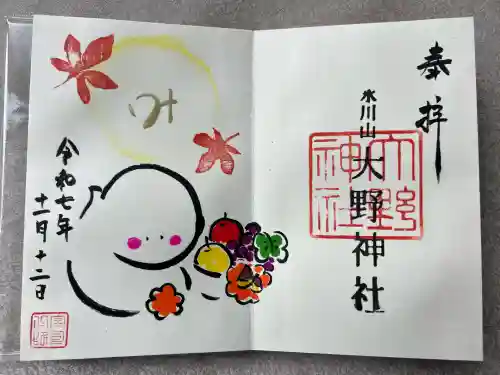 奉拝
水川山
大野神社
大野
神社
み
令和七年
十一月十二日